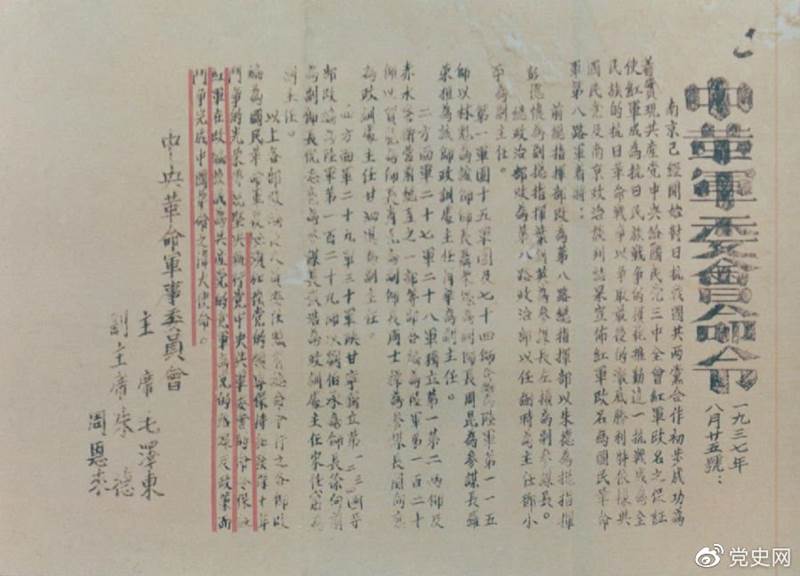 中革軍委會命令
一九三七年
八月廿五號：
南京已經開始對日抗戰國共兩黨合作初步成功為
着實現共產党中央給國民党三中全會紅軍改名之保証
使紅軍成為抗日民族戰爭的模範推動這一抗戰成為全
民族的抗日革命戰爭以爭取最後的澈底勝利特依據與
國民党及南京政治談判結果宣佈紅軍改名為國民革命
軍第八路軍着將：
前總指揮部改為第八路總指揮部以朱德為總指揮
彭德懷為副總指揮葉劍英為參謀長左權為副參謀長。
總政治部改為第八路政治部以任弼時為主任鄧小
平為副主任。
第一軍團十五軍團及七十四師合編為陸軍第一一五
師以林彪為該師師長聶榮臻為副師長周昆為參謀長羅
榮桓為該師政訓處主任肖華為副主任。
二方面軍二十七軍二十八軍獨立第一第二兩師及
赤水警衛營前總直之一部等部合編為陸軍第一百二十
師以賀龍為師長肖克為副師長周士第為參謀長關向應
為政訓處主任甘泗淇為副主任。
四方面軍二十九軍三十軍陝甘寧獨立第一二三四等
部改編為陸軍第一百二十九師以劉伯承為師長徐向前
為副師長倪志亮為參謀長張浩為政訓處主任宋任窮為
副主任。
以上各部改編後人員委任照前總命令行之各部改
編為國民革命軍後必須加強党的領導保持和發揚十年
鬥爭的光榮傳統堅決執行党中央與軍委會的命令保証
紅軍在改編後成為共產党的党軍為党的路線及政策而
鬥爭完成中國革命之偉大使命。
中央革命軍事委員會
主席毛澤東
副主席朱德
周恩來
党史网